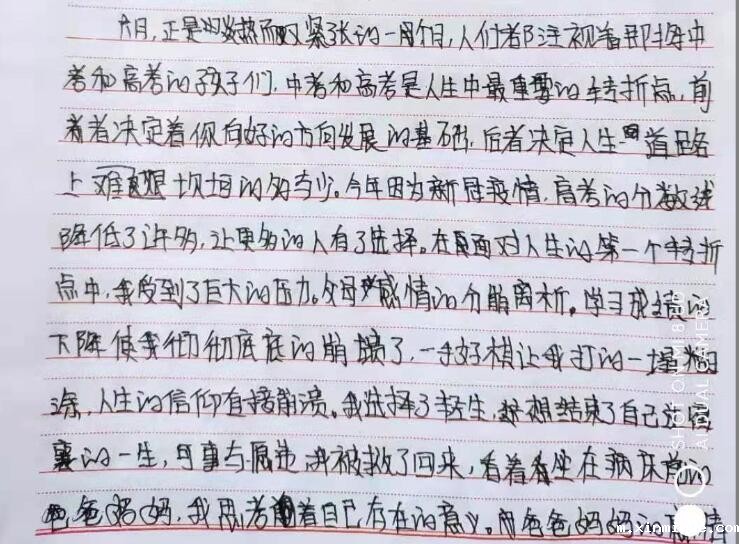 六月,正是炎热而又紧张的一个月,人们都注视着那些中
考和高考的孩子们,中考和高考是人生中最重要的转折点,前
者决定着你向好的方向发展的基础,后者决定人生道路
上艰难坎坷的多与少。今年因为新冠疫情,高考的分数线
降低了许多,让更多的人有了选择。在面对人生的第一个转折
点中,我受到了巨大的压力。父母感情的分崩离析。学习成绩的
下降使我彻彻底底的崩溃了,一手好棋让我打的一塌糊
涂,人生的信仰直接崩溃。我选择了轻生,想结束了自己这
的一生,可事与愿违我被救了回来,看着坐在病床前的
爸爸妈妈,我思考着自己存在的意义。爸爸妈妈的
SHOT ON MI 8 UD
AI DUAL CAMERA